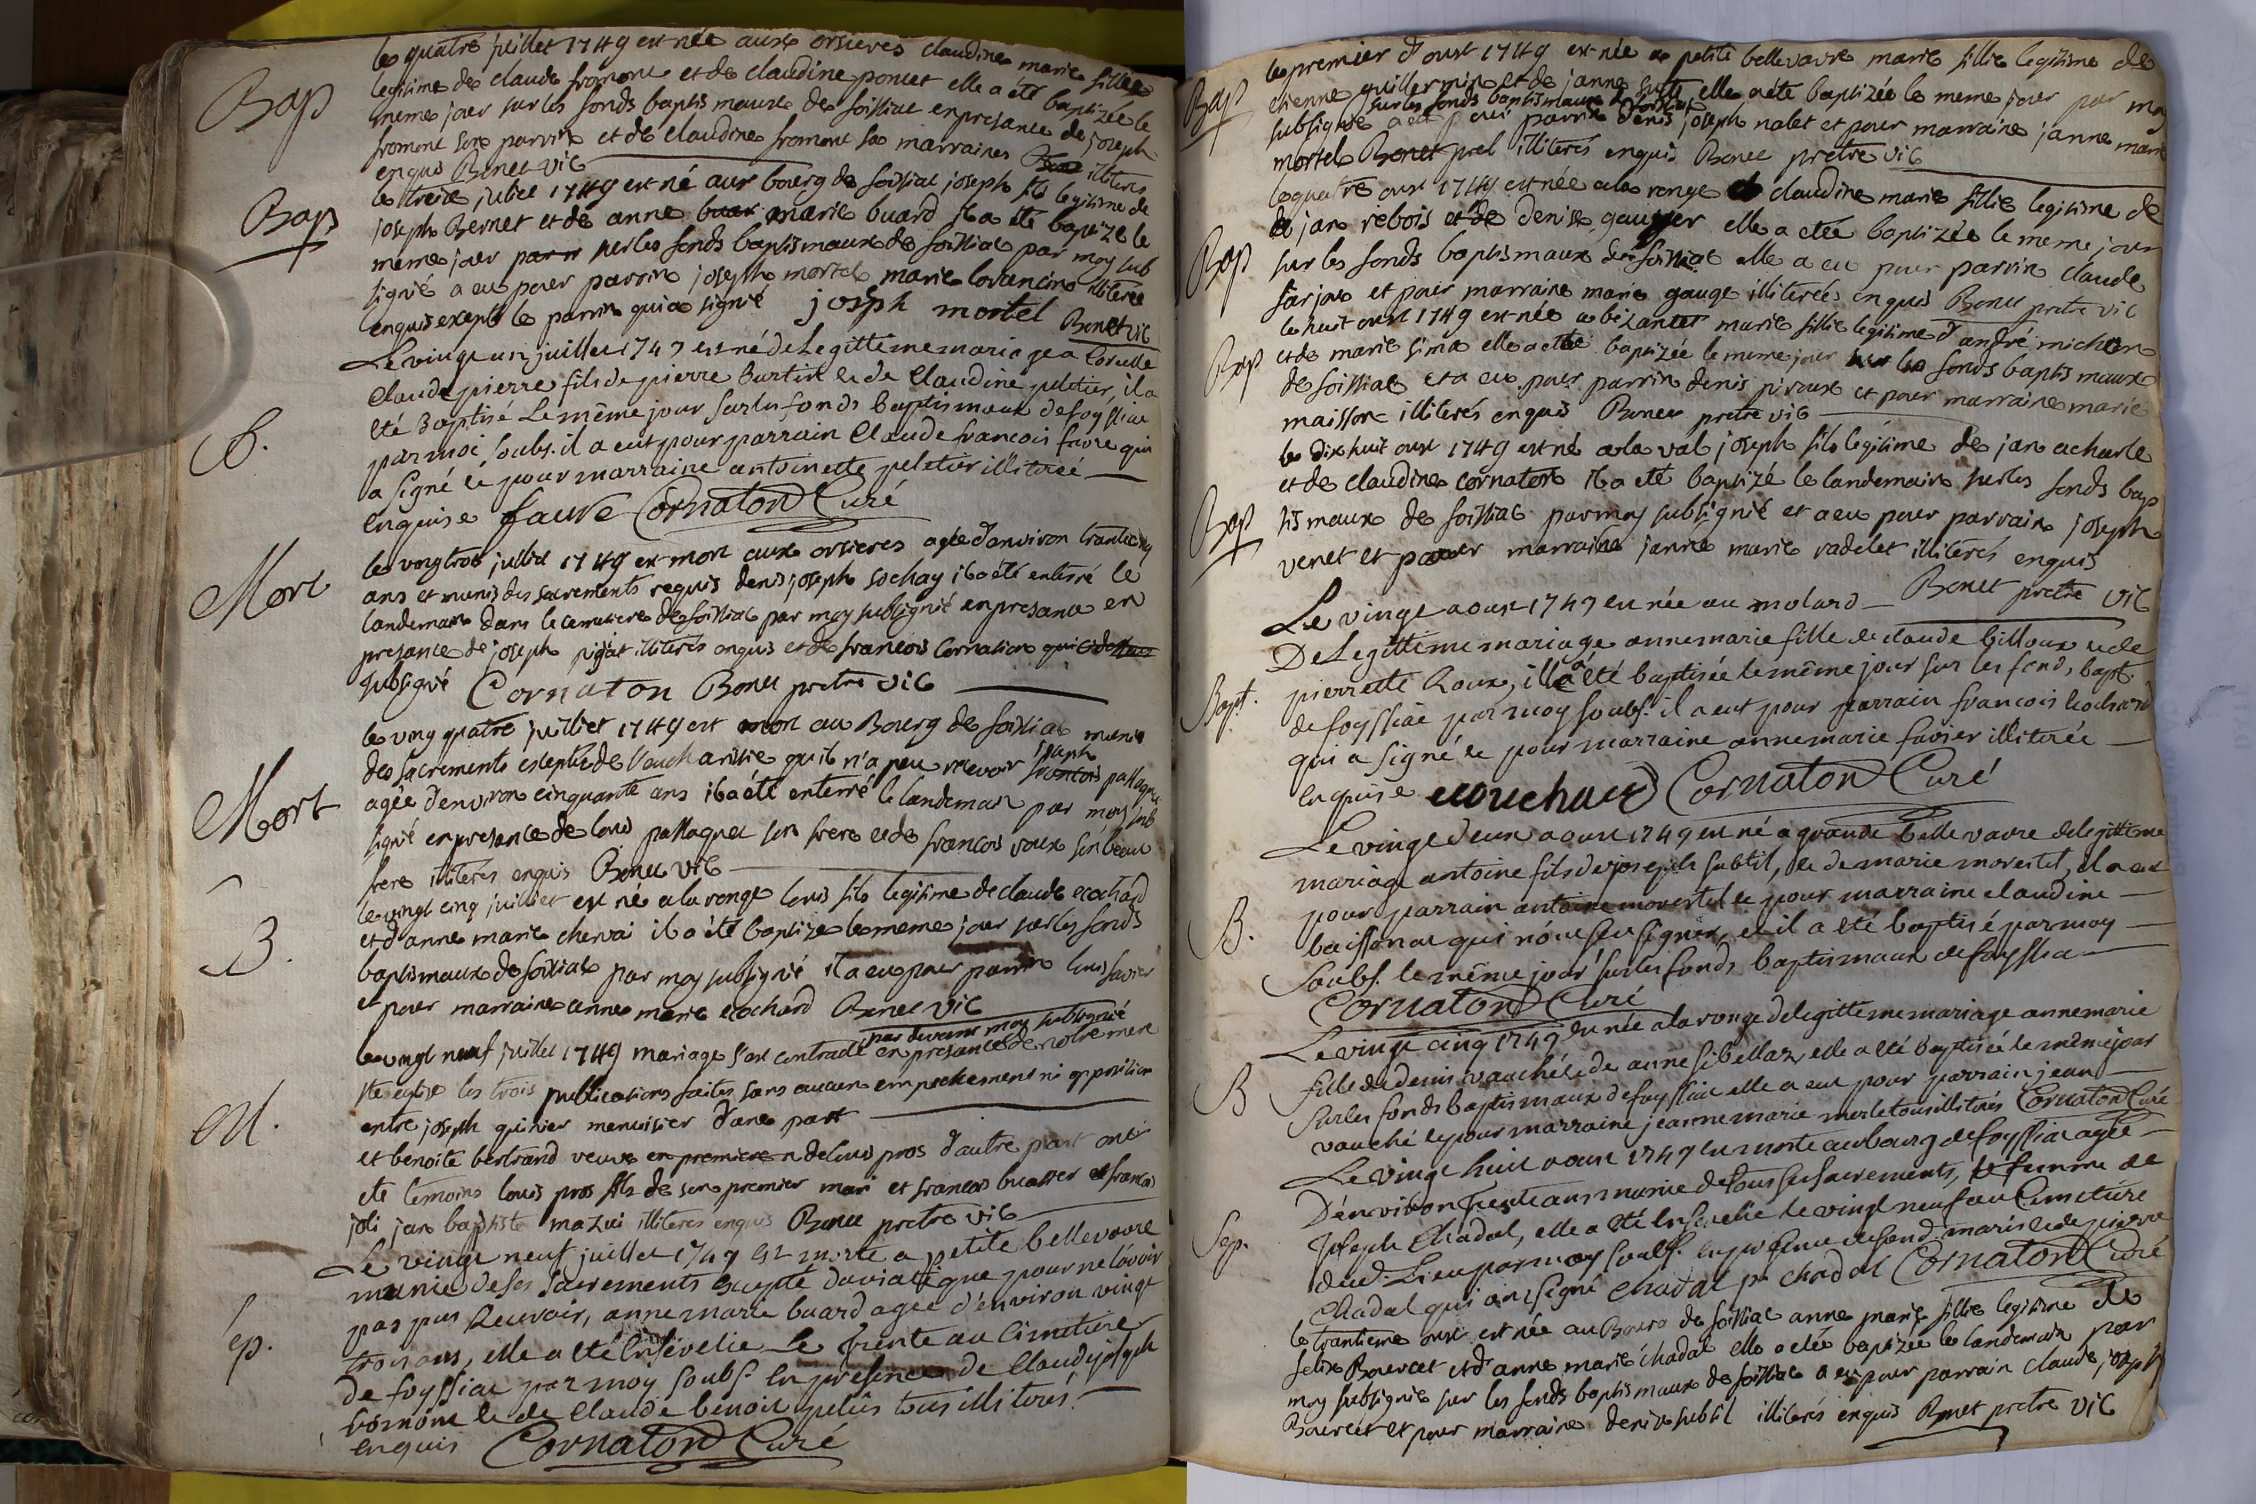 le quatre juillet 1749 est née aux orsieres claudine marie fillie
Bap
legitime de claude fromont et de claudine poncet elle a été baptizée le
meme jour sur les fonds baptismaux de foissiat en presance de joseph
fromont son parrin et de claudine fromont sa marraine illiteres
enquis Benet vic
le treize juliet 1749 est né aux bourg de foissiat joseph fils legitime de
Bap
joseph Bernet et de anne marie buard il a été baptizé le
meme jour par sur les fonds baptismaux de foissiat par moy sub
signié a eu pour parrin joseph mortel marie lorancin illiteree
enquis exepté le parrin qui a signié joseph mortel Benet vic
Le vingt un juillet 1749 est né de Legittime mariage a
Claude pierre fils de pierre Burtin & de Claudine peletier, il a
été Baptisé Le même jour sur les fonds Baptismaux de foyssiat
B.
par moi soubs. il a eut pour parrain Claude francois favre qui
a signé & pour marraine antoinette peletier illiterée
enquise favre Cornaton Curé
le vingtrois juliet 1749 est mort aux orsieres agée d'anviron trantecinq
Mort
ans et munis des sacrements requis denis joseph sochay il a été enterré le
landemain dans le cemetiere de foissiat par moy subsignié en presance en
presance de joseph pijat illiteres enquis et de francois Cornaton qui
subsigné Cornaton Benet pretre vic
le ving quatre juilliet 1749 est mort au Bourg de foissiat munis
des sacrements exsepté de l'eucharistie qu'il n'a peu recevoir joseph francois passaquet
Mort
agée d'environ cinquante ans il a été enterré le landemain par moy sub
signié en presance de louis passaquet son frere et de francois roux son beau
frere illiteres enquis Benet vic
le vingt cinq juilliet est né a la ronge louis fils legitime de claude ecochard
B.
et d'anne marie chervai il a été baptize le meme jour sur les fonds
baptismaux de foissiat par moy subsignié il a eu pour parrin louis favier
et pour marraine anne marie ecochard Benet vic
par devant moy subsignié
le vingt neuf juillet 1749 mariage s'est contracté en presance de notre mere
ste eglise les trois publications faites sans aucun empechement ni opposition
M.
entre joseph quinier menuisier d'une part
et benoite bertrand veuve en premiere n de louis pros d'autre part ont
eté temoins louis pros fils de son premier mari et francois buatier et francois
joli jan baptiste mazui illiteres enquis Benet pretre vic
Le vingt neuf juillet 1749 est morte a petite bellevavre
munie de ses sacrements excepté du viatique pour ne l'avoir
pas peu recevoir, anne marie buard agée d'environ vingt
ep.
trois ans, elle a été Ensevelie Le trente au Cimetiere
de foyssiat par moy soubs. en presence de Claude joseph
bornone & de Claude benoit pelus tous illiterés
enquis Cornaton Curé
le premier d'oust 1749 est née a petite bellevavre marie fillie legitime de
Bap
etienne guillermin et de janne elle a été baptizée le meme jour par moy
sur les fonds baptismaux de foissiat
subsignié a eu pour parrin denis joseph nalet et pour marraine janne marie
mortel Benet illiterés enquis Benet pretre vic
le quatre oust 1749 est née a la ronge claudine marie fillie legitime de
de jan rebois et de denise elle a etée baptizée le meme jour
Bap
sur les fonds baptismaux de foissiat elle a eu pour parrin claude
farjon et pour marraine marie gauge illiterées enquis Benet pretre vic
le huit oust 1749 est née a bezantet marie fillie legitime d'andré michon
Bap
et de marie sima elle a eté baptizée le meme jour sur les fonds baptis maux
de foissiat et a eu pour parrin denis piroux et pour marraine marie
maisson illiterés enquis Benet pretre vic
le dixhuit oust 1749 est né a la val joseph fils legitime de jan acharle
et de claudine cornaton il a eté baptizé le landemain sur les fonds bap
Bap
tismaux de foissiat par moy subsignié et a eu pour parrain joseph
venet et pour marraine janne marie radelet illiterés enquis
Benet pretre vic
Le vingt aoust 1749 est née au molard
De Legittime mariage anne marie fille de claude billoux & de
Bapt.
pierrette Roux, ill a été baptisée le même jour sur les fonds bapt.
de foyssiat par moy soubs. il a eut pour parrain francois ecochard
qui a signé & pour marraine anne marie favier illiterée
enquise ecouchard Cornaton Curé
Le vingt deux aoust 1749 est né a grande bellevavre de legittime
mariage antoine fils de joseph subtil, & de marie morestel, il a eut
B.
pour parrain antoine morestel & pour marraine claudine
boissonat qui n'ont seu signer, et il a été baptisé par moy
Soubs. le même jour sur les fonds baptismaux de foyssia
Cornaton Curé
Le vingt cinq 1749 est née a la ronge de legittime mariage anne marie
B
fille de denis vauché & de anne sibellaz, elle a été baptisée le même jour
sur les fonds baptismaux de foyssiat elle a eut pour parrain jean
vauché & pour marraine jeanne marie merle tous illiterés Cornaton Curé
Le vingt huit aoust 1749 est morte au bourg de foyssiat agée
D'environ trente ans munie de tous ses sacrements, femme de
Sep.
joseph Chadal, elle a été ensevelie le vingt neuf au Cimetiere
dud. Lieu par moy soubs. en presence dud. maris & de pierre
Chadal qui ont signé chadal p. chadal Cornaton Curé
le trantieme oust est née au Bourg de foissiat anne marie fillie legitime de
felix Bouvret et d'anne marie chadal elle a etée baptizée le landemain par
moy subsignié sur les fonds baptismaux de foissiat a eu pour parrain claude joseph
Bouvret et pour marraine denise subtil illiterés enquis Benet pretre vic